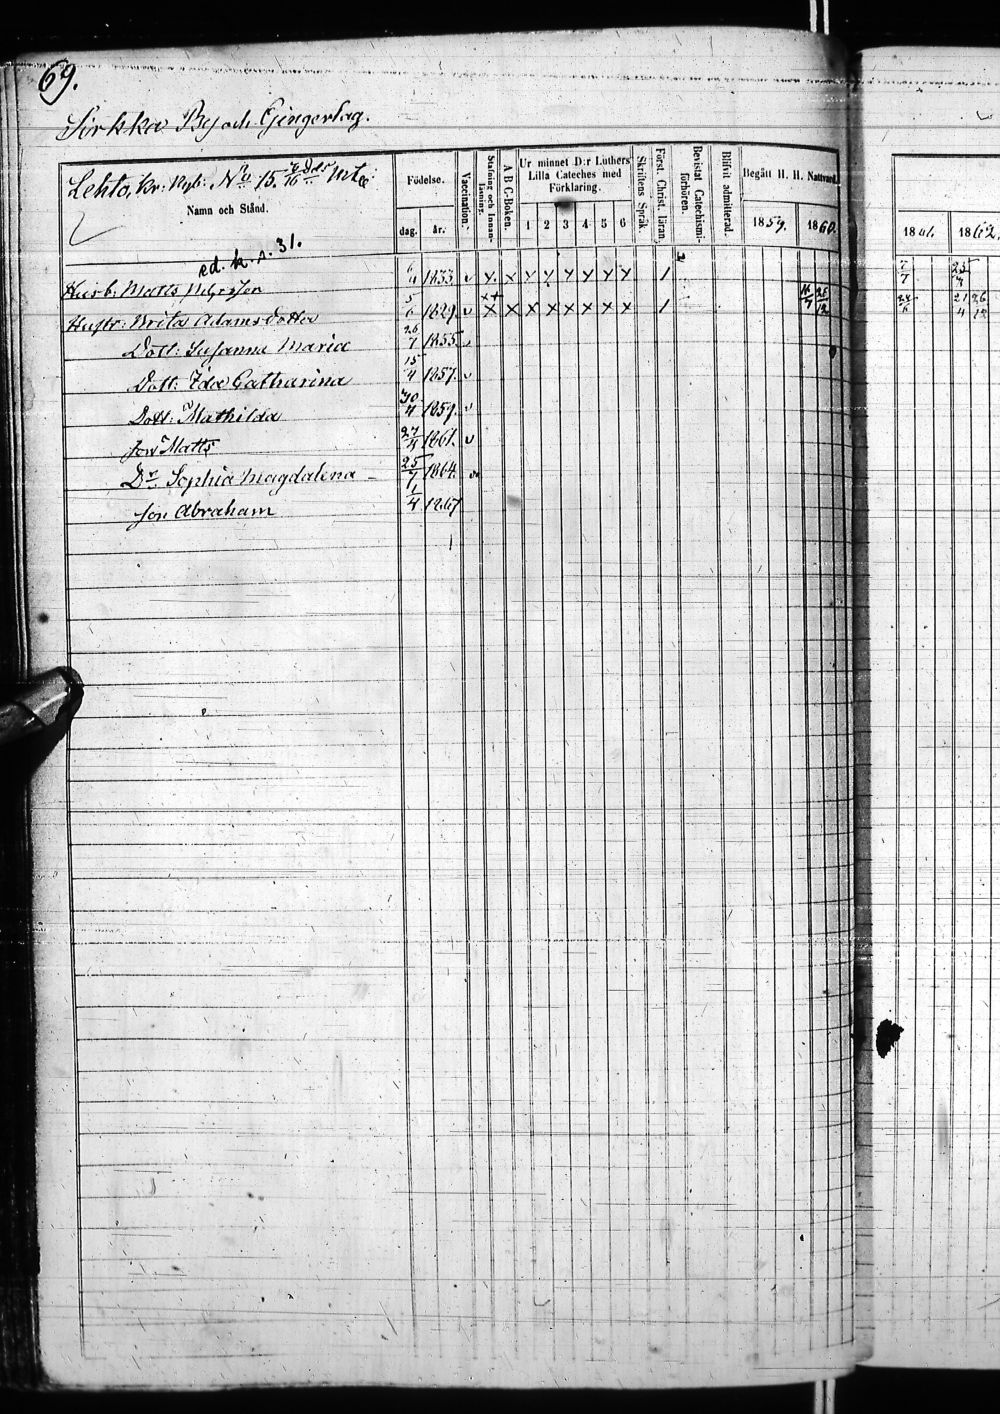 69.
Sirkka By och Gingerlag.
Lehto, Kr: Nyb: No 15. Mtl:
Namn och Stånd.
Födelse.
dag. år.
Vaccination.
Sedning och Innanläsning.
A B C-Boken.
Ur minnet D:r Luthers Lilla Cateches med Förklaring.
1 2 3 4 5 6
Skriftens Språk.
Först. Christ. läran.
Bevistat Catechismiförhören.
Blifvit admitterad.
Begått H. H. Nattvard.
1859. 1860.
1861. 1862.
ed. k. s. 31.
Husb: Matts 1833 v x x x x x x x 1
Hustr: Brita Adamsdotter 5/6 1829. v x x x x x x x x 1
Dott: Susanna Maria 26/7 1855. v
Dott: Ida Catharina 15/4 1857. v
Dott: Mathilda 30/4 1859. v
Son Matts 27/4 1861. v
Dr Sophia Magdalena 25/7 1864. v
Son Abraham 1/4 1867